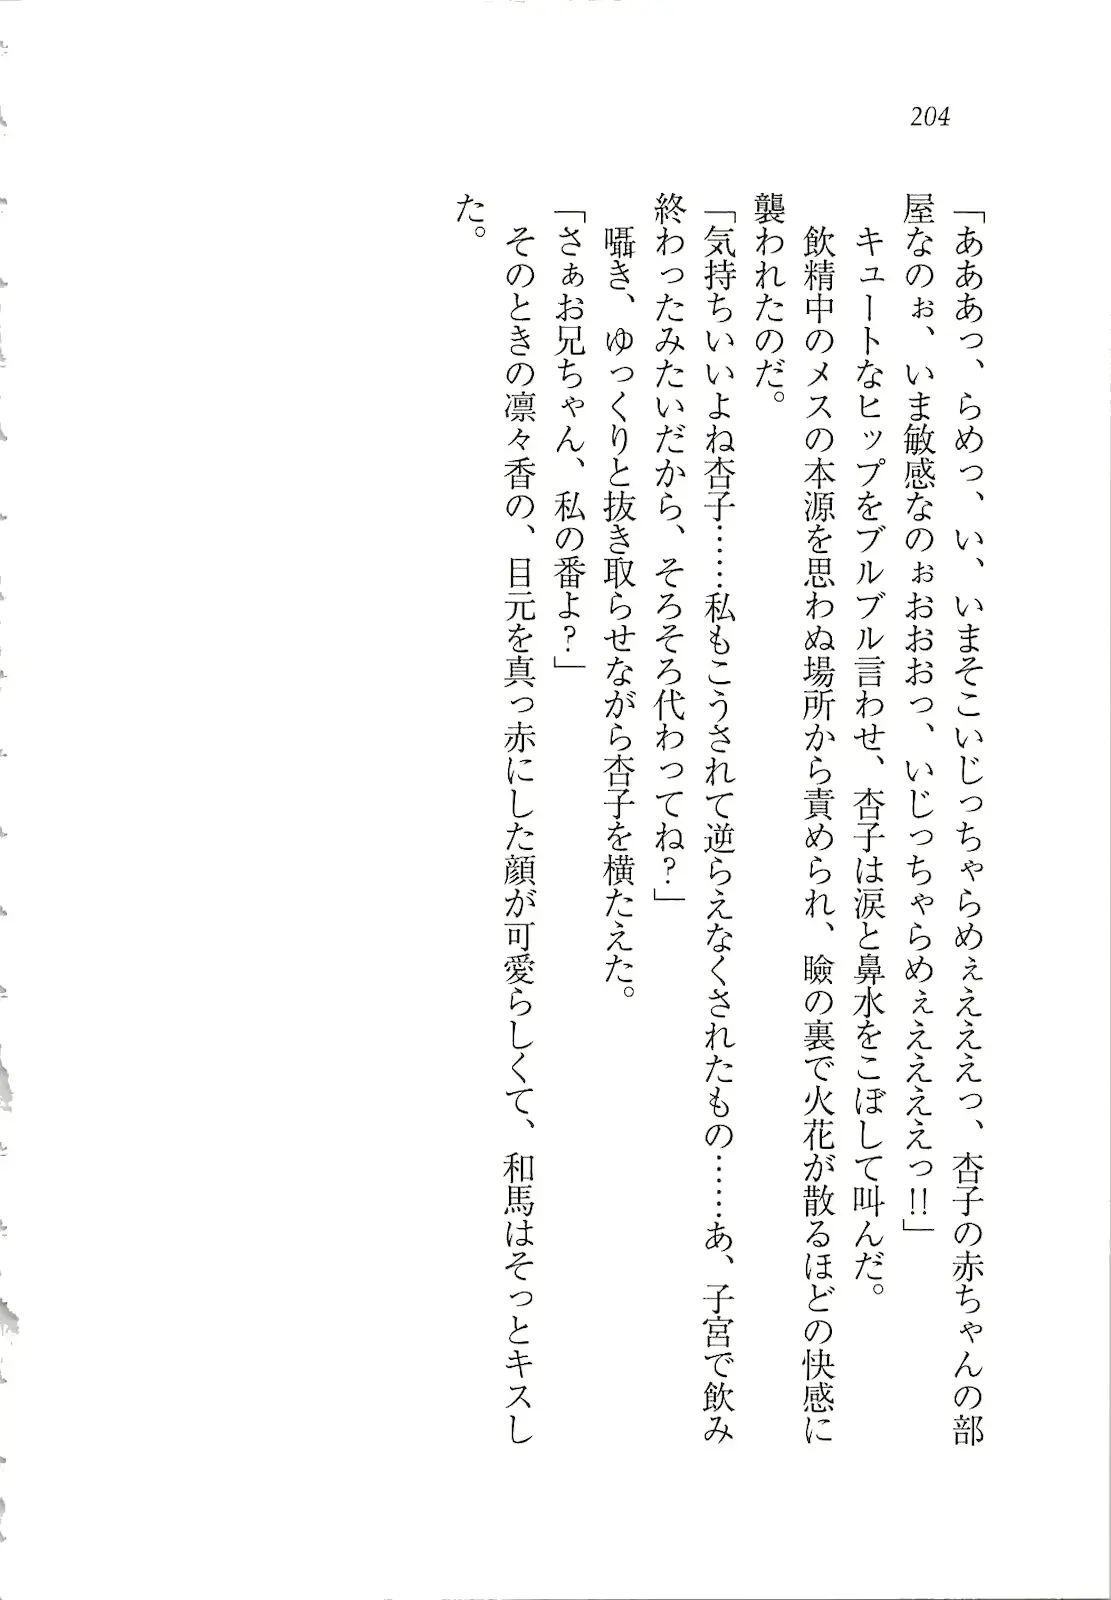 204
「あああっ、らめっ、い、いまそこいじっちゃらめぇえええっ、杏子の赤ちゃんの部
屋なのぉ、いま敏感なのぉおおおっ、いじっちゃらめぇええええっ!!」
キュートなヒップをブルブル言わせ、杏子は涙と鼻水をこぼして叫んだ。
飲精中のメスの本源を思わぬ場所から責められ、瞼の裏で火花が散るほどの快感に
襲われたのだ。
「気持ちいいよね杏子……私もこうされて逆らえなくされたもの……あ、子宮で飲み
終わったみたいだから、そろそろ代わってね?」
囁き、ゆっくりと抜き取らせながら杏子を横たえた。
「さぁお兄ちゃん、私の番よ?」
そのときの凛々香の、目元を真っ赤にした顔が可愛らしくて、和馬はそっとキスし
た。